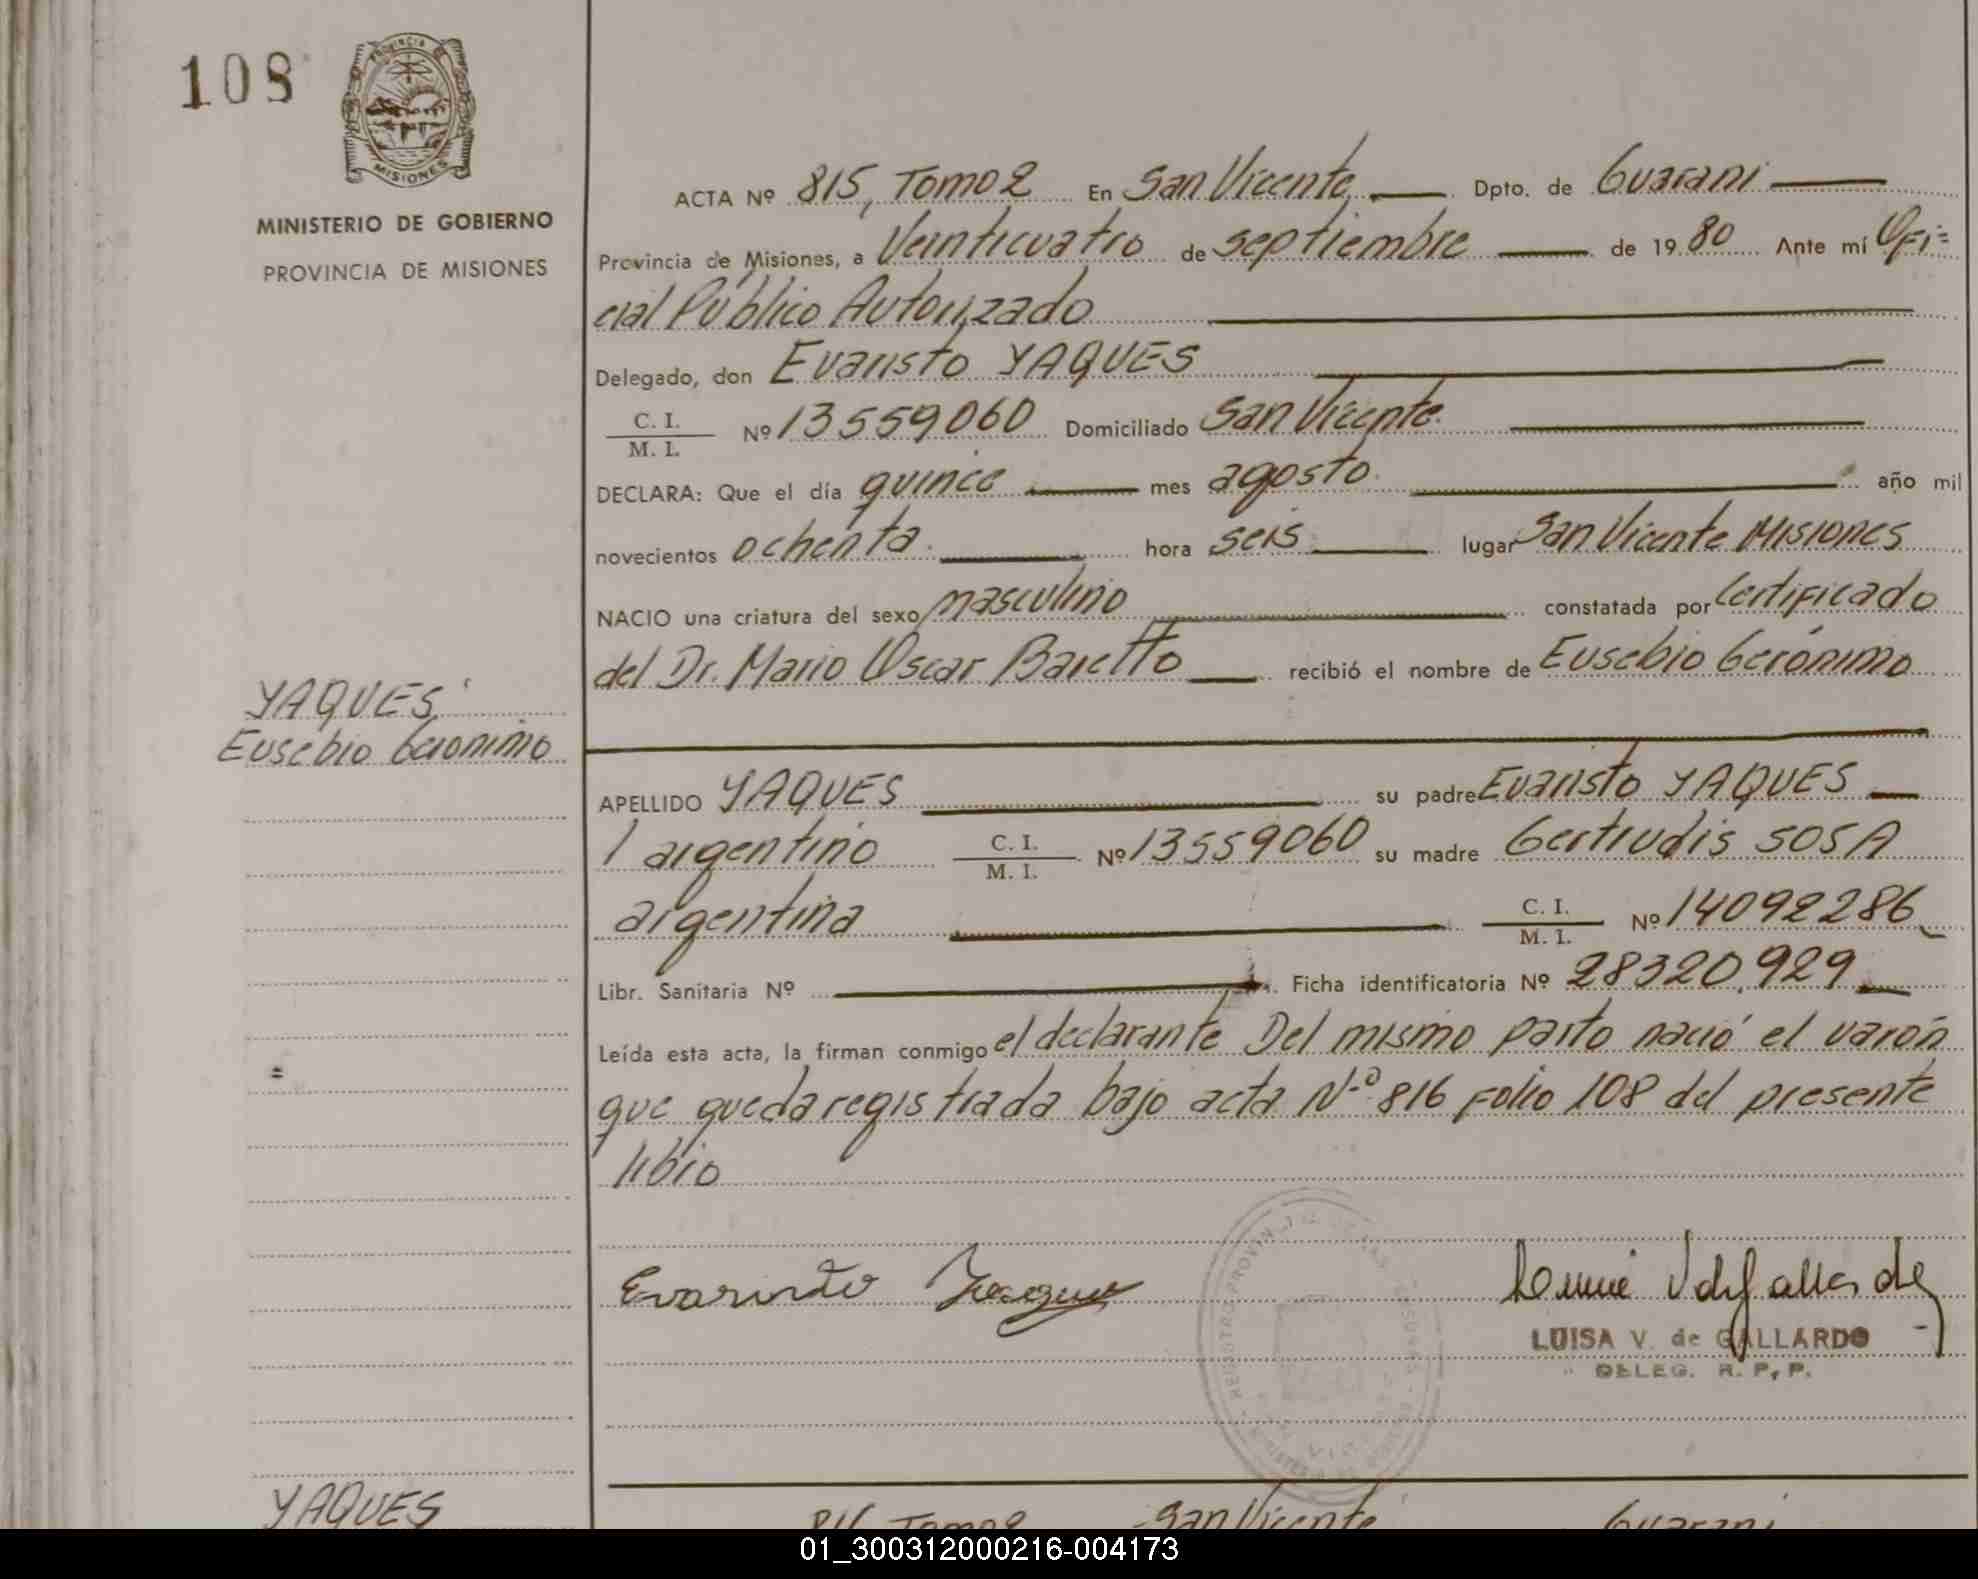 108
PROVINCIA DE
MISIONES
MINISTERIO DE GOBIERNO
PROVINCIA DE MISIONES
ACTA Nº 815, Tomo 2 En San Vicente Dpto. de Guarani
Provincia de Misiones, a Veinticuatro de septiembre de 1980 Ante mí Ofi=
cial Público Autorizado
Delegado, don Evaristo YAQUES
C. I.
M. I. Nº 13559060 Domiciliado San Vicente.
DECLARA: Que el día quince mes agosto. año mil
novecientos ochenta. hora seis lugar San Vicente Misiones
NACIO una criatura del sexo masculino constatada por Certificado
del Dr. Mario Oscar Baretto recibió el nombre de Eusebio Gerónimo
YAQUES
Eusebio Geronimo
APELLIDO YAQUES su padre Evaristo YAQUES
argentino C. I.
M. I. Nº 13559060 su madre Gertrudis SOSA
argentina C. I.
M. I. Nº 14092286
Libr. Sanitaria Nº Ficha identificatoria Nº 28320.929
Leída esta acta, la firman conmigo el declarante Del mismo parto nació el varón
que queda registrada bajo acta Nº 816 folio 108 del presente
libro
Evaristo Yaques
LUISA V. de GALLARDO
DELEG. R. P. P.
YAQUES
816 Tomo 2 San Vicente Guarani
01_300312000216-004173